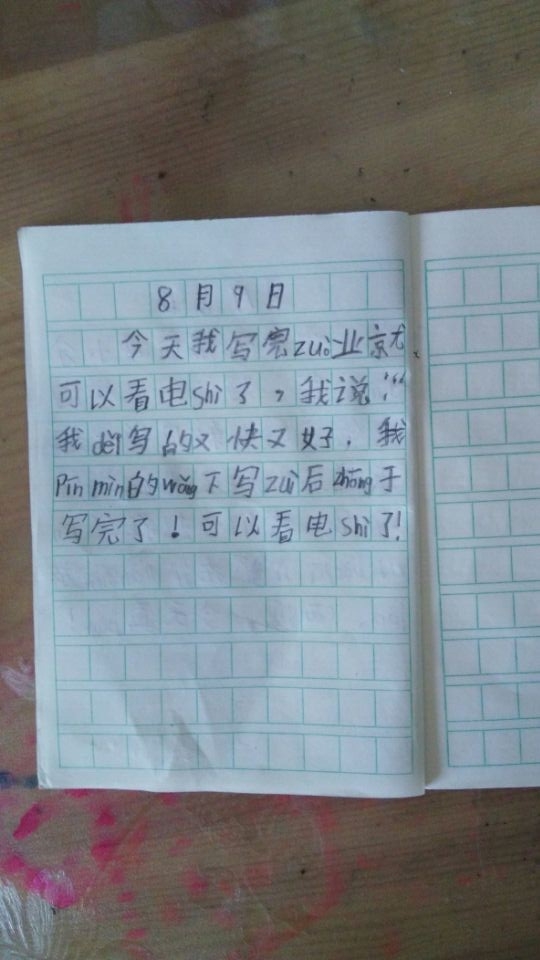 8月9日
今天我写完zuò业就
可以看电shì了,我说:“
我děi写的又快又好,我
Pīn mìn的wǎng下写zuì后zhōng于
写完了！可以看电shì了!